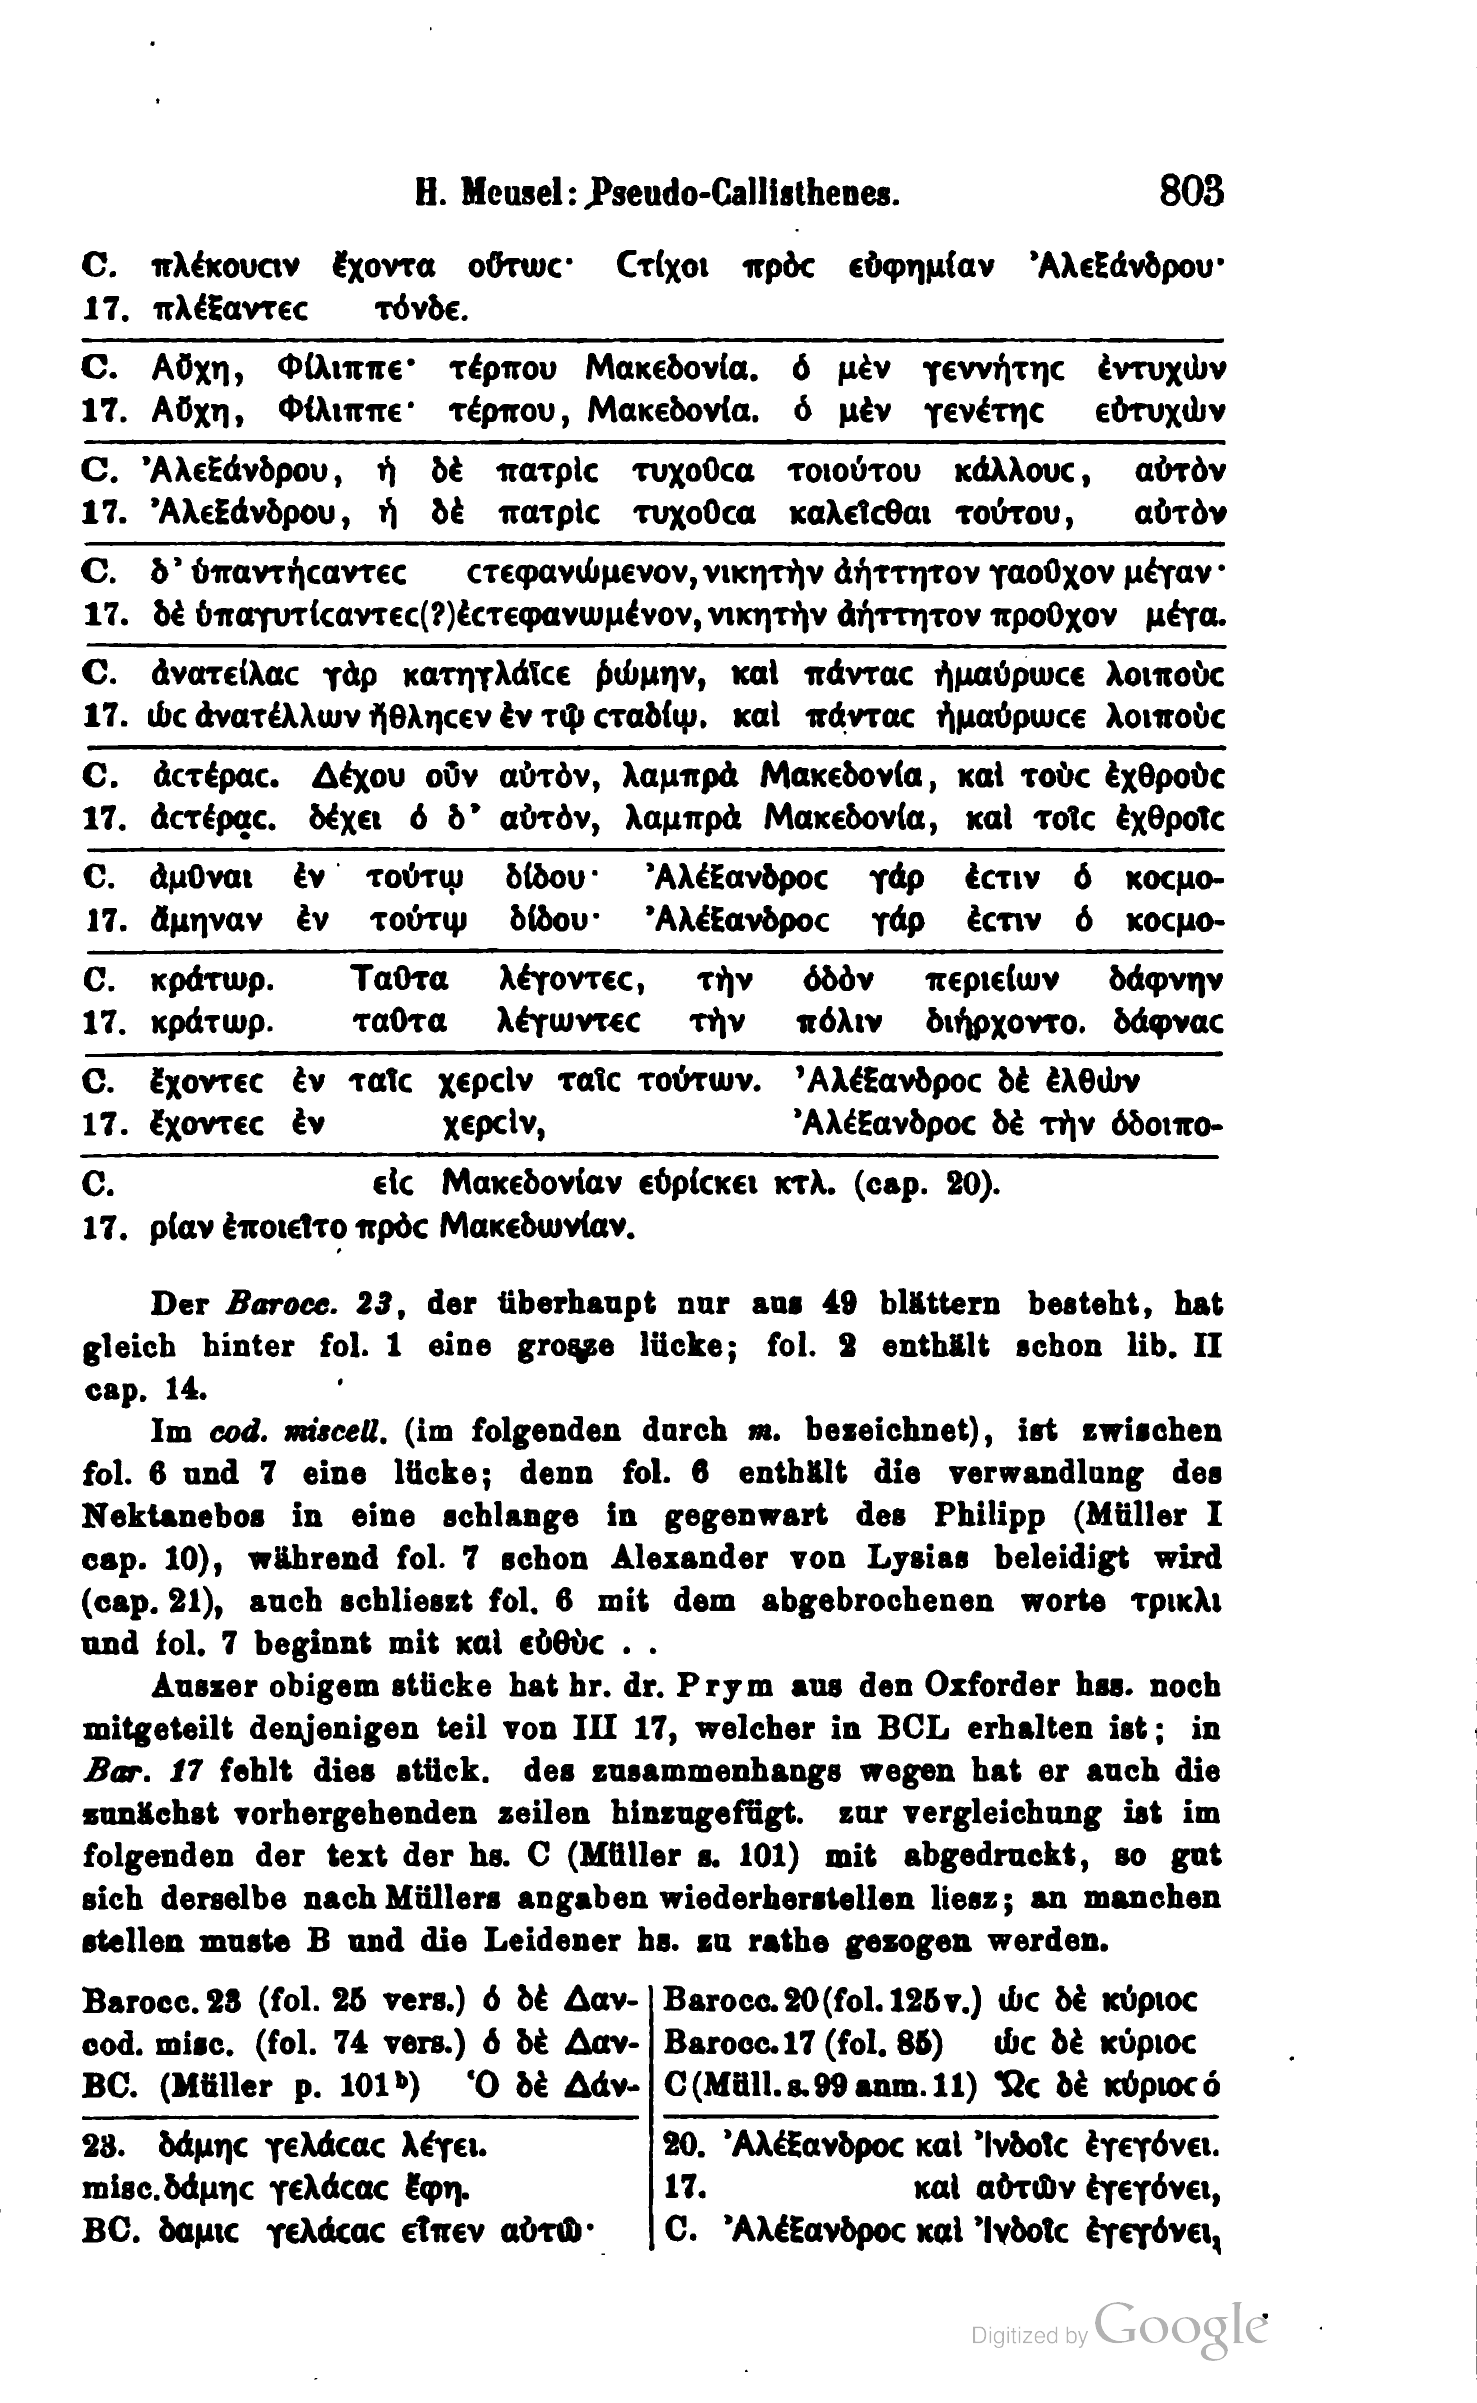 H. Meusel: Pseudo-Callisthenes. 803
C. πλέκουϲιν ἔχοντα οὕτωϲ· Ϲτίχοι πρὸϲ εὐφημίαν Ἀλεξάνδρου·
17. πλέξαντεϲ τόνδε.
C. Αὔχη, Φίλιππε· τέρπου Μακεδονία. ὁ μὲν γεννήτηϲ ἐντυχὼν
17. Αὔχη, Φίλιππε· τέρπου, Μακεδονία. ὁ μὲν γενέτηϲ εὐτυχὼν
C. Ἀλεξάνδρου, ἡ δὲ πατρὶϲ τυχοῦϲα τοιούτου κάλλουϲ, αὐτὸν
17. Ἀλεξάνδρου, ἡ δὲ πατρὶϲ τυχοῦϲα καλεῖϲθαι τούτου, αὐτὸν
C. δ' ὑπαντήϲαντεϲ ϲτεφανώμενον, νικητὴν ἀήττητον γαοῦχον μέγαν·
17. δὲ ὑπαγυτίϲαντεϲ(?)ἐϲτεφανωμένον, νικητὴν ἀήττητον προῦχον μέγα.
C. ἀνατείλαϲ γὰρ κατηγλάϊϲε ῥώμην, καὶ πάνταϲ ἠμαύρωϲε λοιποὺϲ
17. ὡϲ ἀνατέλλων ἤθληϲεν ἐν τῷ ϲταδίῳ. καὶ πάνταϲ ἠμαύρωϲε λοιποὺϲ
C. ἀϲτέραϲ. Δέχου οὖν αὐτὸν, λαμπρὰ Μακεδονία, καὶ τοὺϲ ἐχθροὺϲ
17. ἀϲτέραϲ. δέχει ὁ δ' αὐτὸν, λαμπρὰ Μακεδονία, καὶ τοῖϲ ἐχθροῖϲ
C. ἀμῦναι ἐν τούτῳ δίδου· Ἀλέξανδροϲ γάρ ἐϲτιν ὁ κοϲμο-
17. ἄμηναν ἐν τούτῳ δίδου· Ἀλέξανδροϲ γάρ ἐϲτιν ὁ κοϲμο-
C. κράτωρ. Ταῦτα λέγοντεϲ, τὴν ὁδὸν περιείων δάφνην
17. κράτωρ. ταῦτα λέγωντεϲ τὴν πόλιν διήρχοντο. δάφναϲ
C. ἔχοντεϲ ἐν ταῖϲ χερϲὶν ταῖϲ τούτων. Ἀλέξανδροϲ δὲ ἐλθὼν
17. ἔχοντεϲ ἐν χερϲὶν, Ἀλέξανδροϲ δὲ τὴν ὁδοιπο-
C. εἰϲ Μακεδονίαν εὑρίϲκει κτλ. (cap. 20).
17. ρίαν ἐποιεῖτο πρὸϲ Μακεδωνίαν.
Der Barocc. 23, der überhaupt nur aus 49 blättern besteht, hat
gleich hinter fol. 1 eine grosze lücke; fol. 2 enthält schon lib. II
cap. 14.
Im cod. miscell. (im folgenden durch m. bezeichnet), ist zwischen
fol. 6 und 7 eine lücke; denn fol. 6 enthält die verwandlung des
Nektanebos in eine schlange in gegenwart des Philipp (Müller I
cap. 10), während fol. 7 schon Alexander von Lysias beleidigt wird
(cap. 21), auch schlieszt fol. 6 mit dem abgebrochenen worte τρικλι
und fol. 7 beginnt mit καὶ εὐθὺϲ . .
Auszer obigem stücke hat hr. dr. Prym aus den Oxforder hss. noch
mitgeteilt denjenigen teil von III 17, welcher in BCL erhalten ist; in
Bar. 17 fehlt dies stück. des zusammenhangs wegen hat er auch die
zunächst vorhergehenden zeilen hinzugefügt. zur vergleichung ist im
folgenden der text der hs. C (Müller s. 101) mit abgedruckt, so gut
sich derselbe nach Müllers angaben wiederherstellen liesz; an manchen
stellen muste B und die Leidener hs. zu rathe gezogen werden.
Barocc. 23 (fol. 25 vers.) ὁ δὲ Δαν-
cod. misc. (fol. 74 vers.) ὁ δὲ Δαν-
BC. (Müller p. 101ᵇ) Ὁ δὲ Δάν-
23. δάμηϲ γελάϲαϲ λέγει.
misc. δάμηϲ γελάϲαϲ ἔφη.
BC. δαμιϲ γελάϲαϲ εἶπεν αὐτῷ·
Barocc. 20 (fol. 125 v.) ὡϲ δὲ κύριοϲ
Barocc. 17 (fol. 85) ὡϲ δὲ κύριοϲ
C (Müll. s. 99 anm. 11) Ὡϲ δὲ κύριοϲ ὁ
20. Ἀλέξανδροϲ καὶ Ἰνδοῖϲ ἐγεγόνει.
17. καὶ αὐτῶν ἐγεγόνει,
C. Ἀλέξανδροϲ καὶ Ἰνδοῖϲ ἐγεγόνει,
Digitized by Google